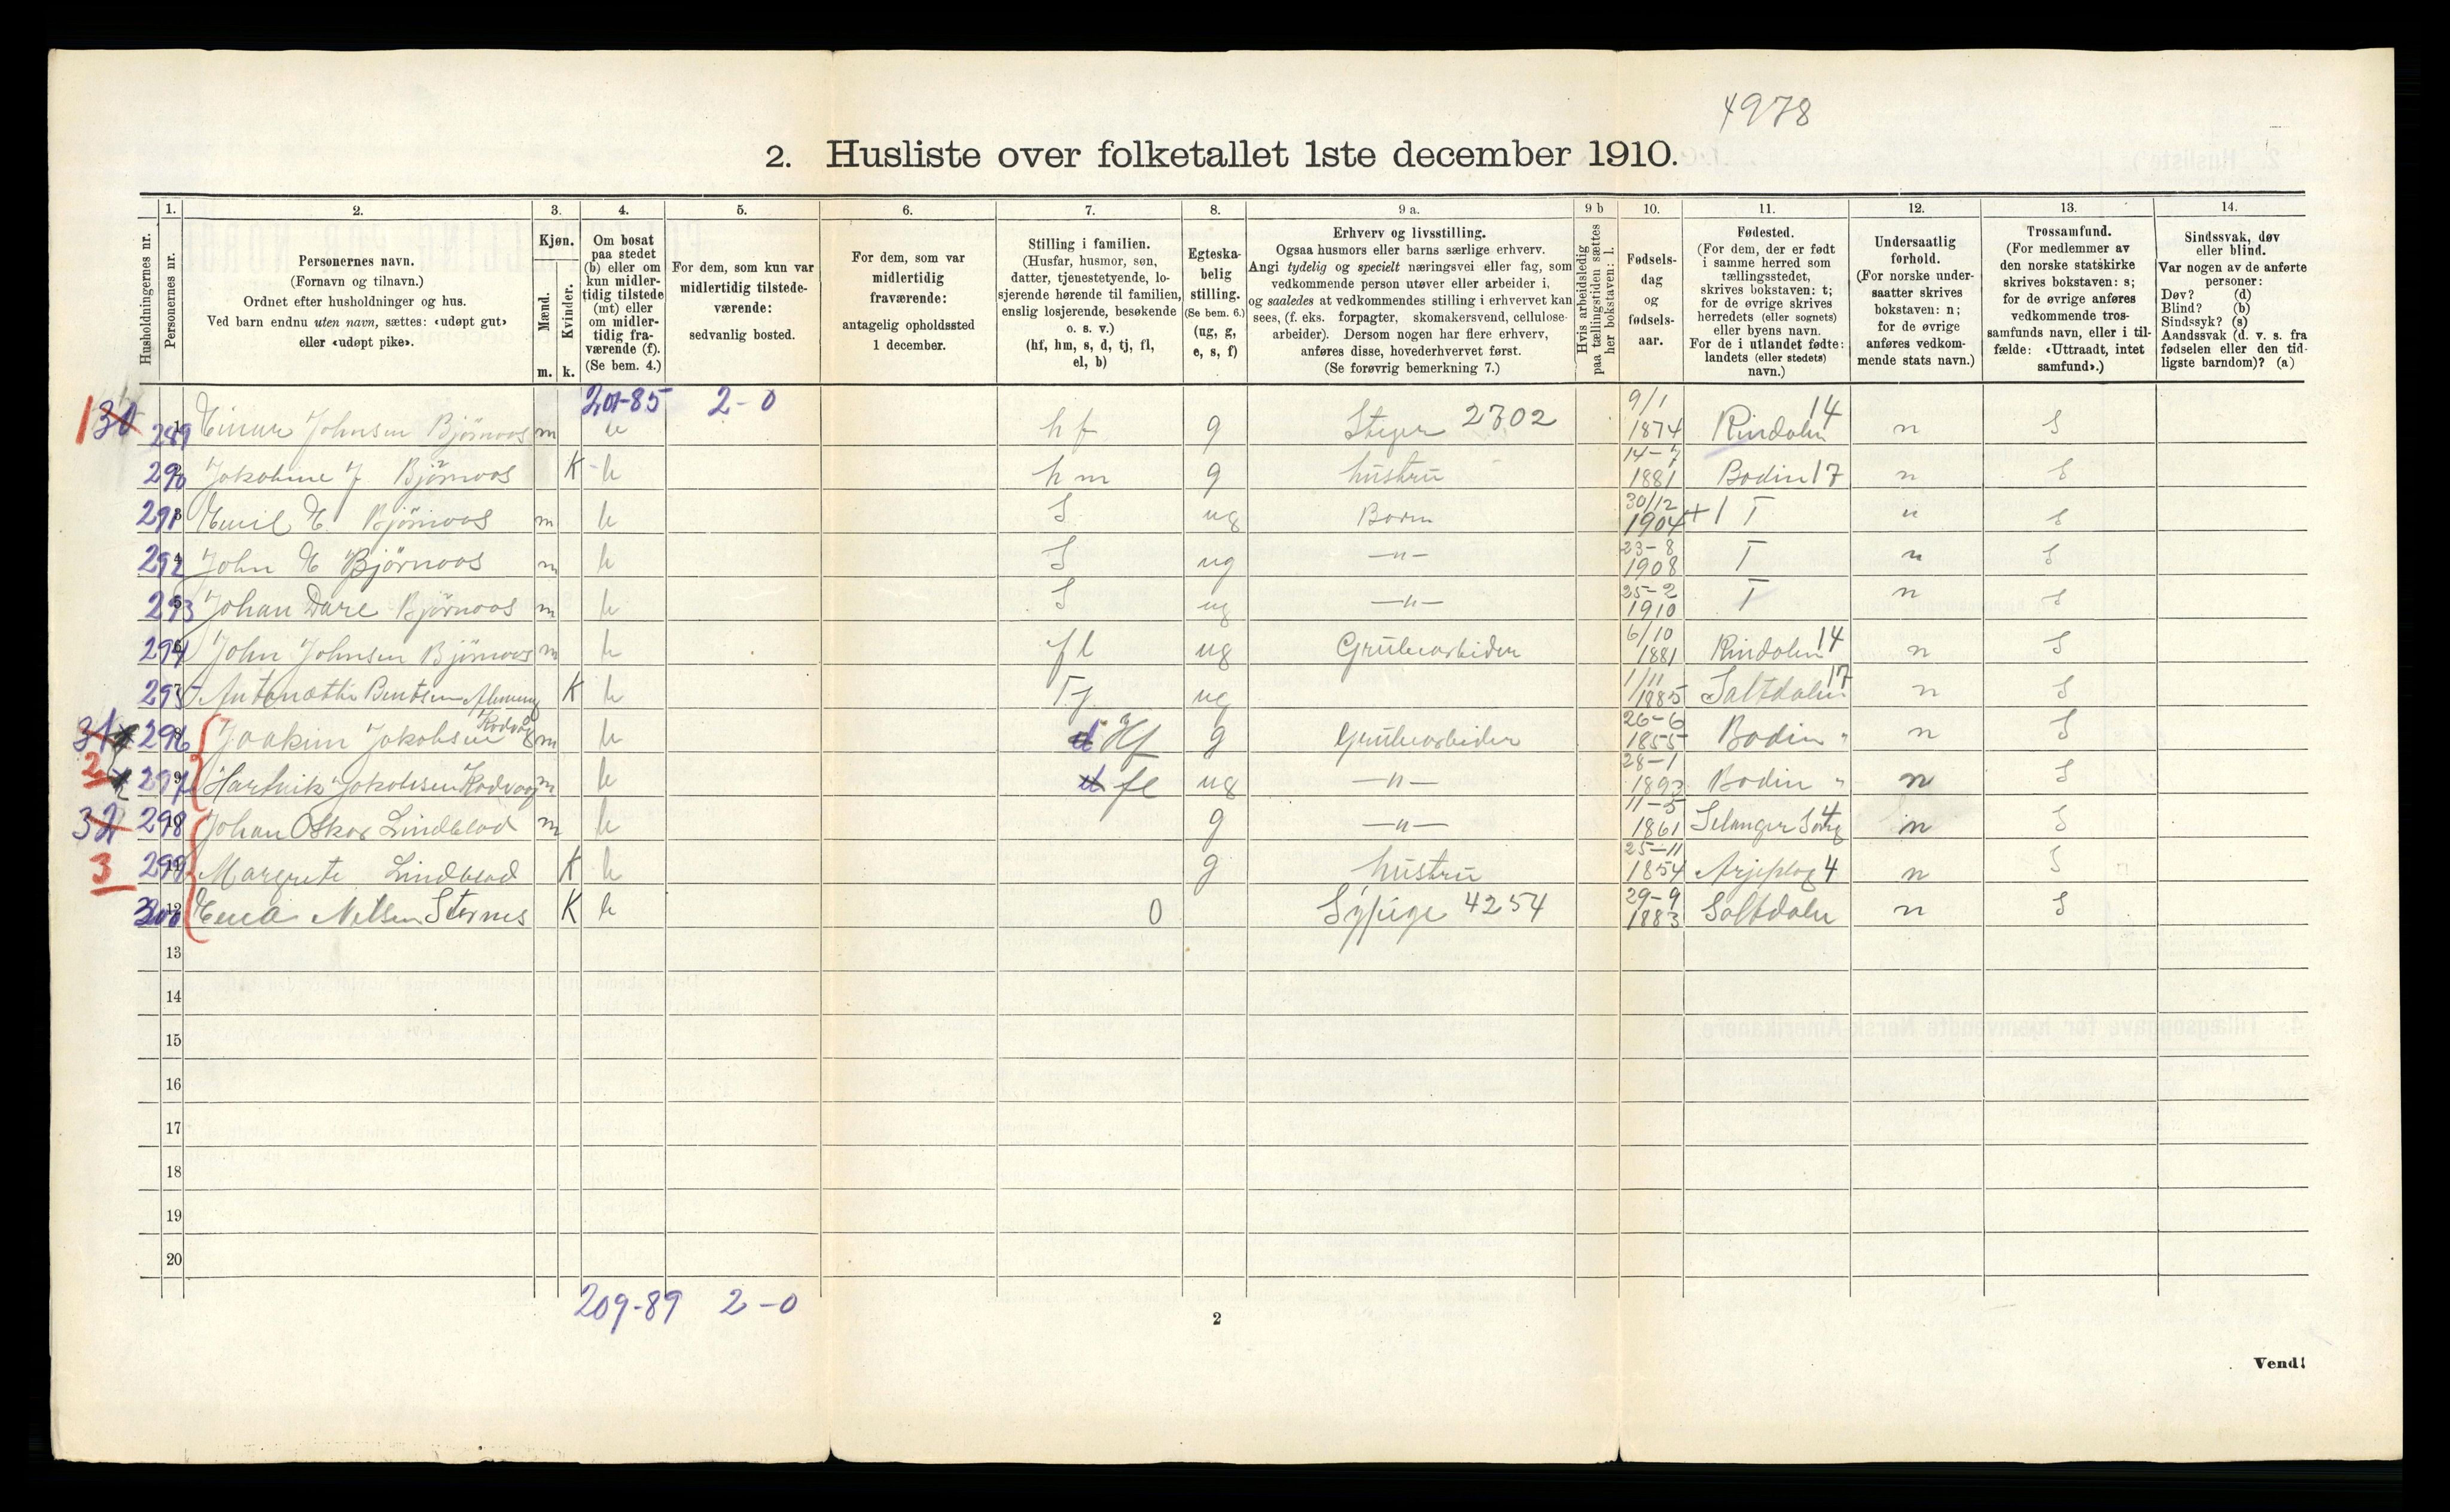 4978
2. Husliste over folketallet 1ste december 1910.
Husholdningernes nr.
1. Personernes nr.
2. Personernes navn. (Fornavn og tilnavn.) Ordnet efter husholdninger og hus. Ved barn endnu uten navn, sættes: «udøpt gut» eller «udøpt pike».
3. Kjøn. Mænd. m. Kvinder. k.
4. Om bosat paa stedet (b) eller om kun midlertidig tilstede (mt) eller om midlertidig fraværende (f). (Se bem. 4.)
5. For dem, som kun var midlertidig tilstedeværende: sedvanlig bosted.
6. For dem, som var midlertidig fraværende: antagelig opholdssted 1 december.
7. Stilling i familien. (Husfar, husmor, søn, datter, tjenestetyende, losjerende hørende til familien, enslig losjerende, besøkende o. s. v.) (hf, hm, s, d, tj, fl, el, b)
8. Egteskabelig stilling. (Se bem. 6.) (ug, g, e, s, f)
9 a. Erhverv og livsstilling. Ogsaa husmors eller barns særlige erhverv. Angi tydelig og specielt næringsvei eller fag, som vedkommende person utøver eller arbeider i, og saaledes at vedkommendes stilling i erhvervet kan sees, (f. eks. forpagter, skomakersvend, cellulosearbeider). Dersom nogen har flere erhverv, anføres disse, hovederhvervet først. (Se forøvrig bemerkning 7.)
9 b Hvis arbeidsledig paa tællingstiden sættes her bokstaven: l.
10. Fødselsdag og fødselsaar.
11. Fødested. (For dem, der er født i samme herred som tællingsstedet, skrives bokstaven: t; for de øvrige skrives herredets (eller sognets) eller byens navn. For de i utlandet fødte: landets (eller stedets) navn.)
12. Undersaatlig forhold. (For norske undersaatter skrives bokstaven: n; for de øvrige anføres vedkommende stats navn.)
13. Trossamfund. (For medlemmer av den norske statskirke skrives bokstaven: s; for de øvrige anføres vedkommende trossamfunds navn, eller i tilfælde: «Uttraadt, intet samfund».)
14. Sindssvak, døv eller blind. Var nogen av de anførte personer: Døv? (d) Blind? (b) Sindssyk? (s) Aandssvak (d. v. s. fra fødselen eller den tidligste barndom)? (a)
201-85 2-0
1 30 289 1 Einar Johnsen Björnaas m b hf g Stiger 2702 9/1 1874 Rindalen 14 n S
290 2 Jakobine J Björnaas K b hm g hustru 14-7 1881 Bodin 17 n S
291 3 Emil E. Björnaas m b S ug Barn 30/12 1904 +1 T n S
292 4 John E Björnaas m b S ug —"— 23-8 1908 T n S
293 5 Johan Dare Björnaas m b S ug —"— 25-2 1910 T n S
294 6 John Johnsen Björnaas m b fl ug Grubearbeider 6/10 1881 Rindalen 14 n S
295 7 Antonætte Bentsen K b Tj ug 1/11 1885 Saltdalen 17 n S
31 296 8 Joakim Jakobsen Kodvåg m b Hf g Grubearbeider 26-6 1855 Bodin " n S
2 297 9 Hartvik Jakobsen Kodvaag m b fl ug —"— 28-1 1893 Bodin " n S
32 298 10 Johan Oskar Lindblad m b g —"— 11-5 1861 Selanger 4 n S
3 299 11 Margrete Lindblad K b g hustru 25-11 1854 Arjeplog 4 n S
300 12 Nilsen Sternes K b 0 Sypige 4254 29-9 1883 Saltdalen n S
13
14
15
16
17
18
19
20
209-89 2-0
2
Vend!